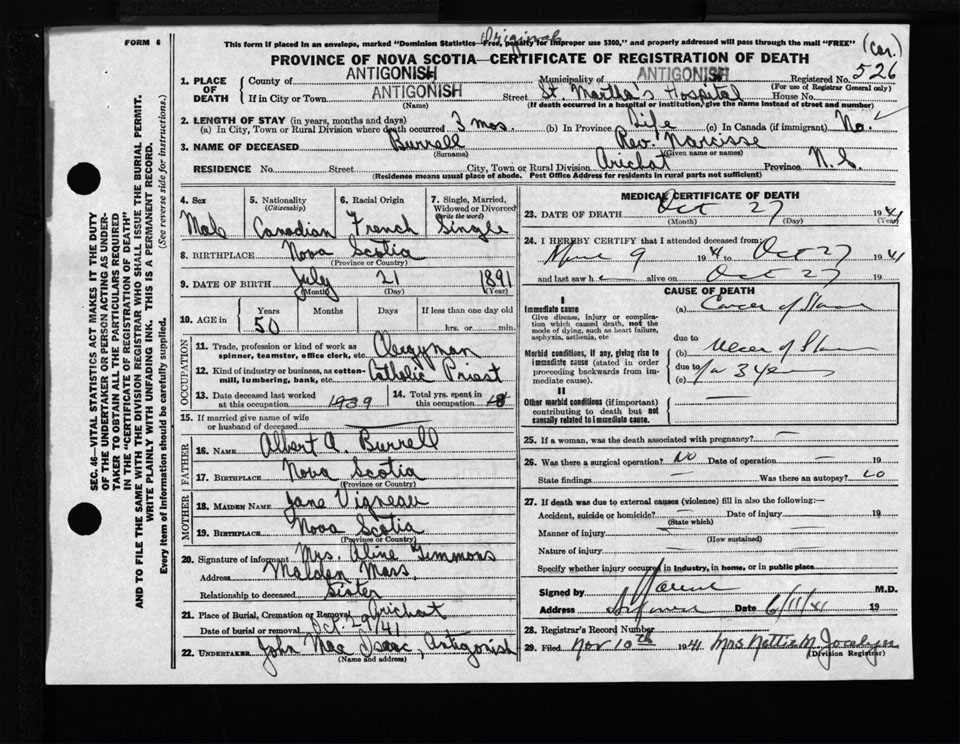 FORM 6
Original
This form if placed in an envelope, marked "Dominion Statistics Free, penalty for improper use $300," and properly addressed will pass through the mail "FREE"
(Cor.)
PROVINCE OF NOVA SCOTIA—CERTIFICATE OF REGISTRATION OF DEATH
1. PLACE OF DEATH County of ANTIGONISH Municipality of ANTIGONISH Registered No. 526
(For use of Registrar General only)
If in City or Town ANTIGONISH Street St. Martha's Hospital House No.
(Name) (If death occurred in a hospital or institution, give the name instead of street and number)
2. LENGTH OF STAY (in years, months and days)
(a) In City, Town or Rural Division where death occurred 3 mos. (b) In Province Life (c) In Canada (if immigrant) No.
3. NAME OF DECEASED Burrell Rev. Narcisse
(Surname) (Given name or names)
RESIDENCE No. Street City, Town or Rural Division Arichat Province N.S.
(Residence means usual place of abode. Post Office Address for residents in rural parts not sufficient)
4. Sex Male
5. Nationality (Citizenship) Canadian
6. Racial Origin French
7. Single, Married, Widowed or Divorced (Write the word) Single
8. BIRTHPLACE Nova Scotia
(Province or Country)
9. DATE OF BIRTH July 21 1891
(Month) (Day) (Year)
10. AGE in Years Months Days If less than one day old
50 hrs. or min.
OCCUPATION
11. Trade, profession or kind of work as spinner, teamster, office clerk, etc. Clergyman
12. Kind of industry or business, as cotton-mill, lumbering, bank, etc. Catholic Priest
13. Date deceased last worked at this occupation 1939
14. Total yrs. spent in this occupation 18
15. If married give name of wife or husband of deceased
FATHER
16. NAME Albert A. Burrell
17. BIRTHPLACE Nova Scotia
(Province or Country)
MOTHER
18. MAIDEN NAME Jane Vigneau
19. BIRTHPLACE Nova Scotia
(Province or Country)
20. Signature of informant Mrs. Aline Simmons
Address Malden Mass.
Relationship to deceased Sister
21. Place of Burial, Cremation or Removal Arichat
Date of burial or removal Oct. 29/41
22. UNDERTAKER John Mac Isaac, Antigonish
(Name and address)
MEDICAL CERTIFICATE OF DEATH
23. DATE OF DEATH Oct 27 1941
(Month) (Day) (Year)
24. I HEREBY CERTIFY that I attended deceased from:
9 1941 to Oct 27 1941
and last saw h e alive on Oct 27 194
CAUSE OF DEATH
I
Immediate cause
Give disease, injury or complication which caused death, not the mode of dying, such as heart failure, asphyxia, asthenia, etc
(a) Cancer of
due to
Morbid conditions, if any, giving rise to immediate cause (stated in order proceeding backwards from immediate cause).
(b) Ulcer of
due to
(c) for 3 years
II
Other morbid conditions (if important) contributing to death but not causally related to immediate cause.
25. If a woman, was the death associated with pregnancy?
26. Was there a surgical operation? No Date of operation
State findings Was there an autopsy?
27. If death was due to external causes (violence) fill in also the following:—
Accident, suicide or homicide? Date of injury 19
(State which)
Manner of injury
(How sustained)
Nature of injury
Specify whether injury occurred in industry, in home, or in public place
Signed by M.D.
Address Date 6/11/41 19
28. Registrar's Record Number
29. Filed Nov 10th 1941 Mrs Nettie M. Jocelyn
(Division Registrar)
SEC. 46—VITAL STATISTICS ACT MAKES IT THE DUTY
OF THE UNDERTAKER OR PERSON ACTING AS UNDERTAKER TO OBTAIN ALL THE PARTICULARS REQUIRED
IN THE "CERTIFICATE OF REGISTRATION OF DEATH"
AND TO FILE THE SAME WITH THE DIVISION REGISTRAR WHO SHALL ISSUE THE BURIAL PERMIT.
WRITE PLAINLY WITH UNFADING INK. THIS IS A PERMANENT RECORD.
Every item of information should be carefully supplied. (See reverse side for instructions.)